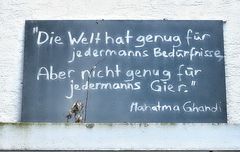 "Die Welt hat genug für
jedermanns Bedürfnisse,
Aber nicht genug für
jedermanns Gier."
Mahatma Ghandi